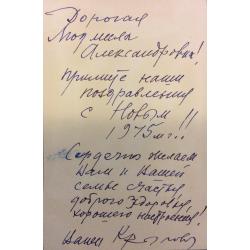 Дорогая
Людмила
Александровна!
примите наши
поздравления
с Новым!!
1975м г.!
Сердечно желаем
Вам и Вашей
семье счастья,
доброго здоровья,
хорошего настроения!
Ваши